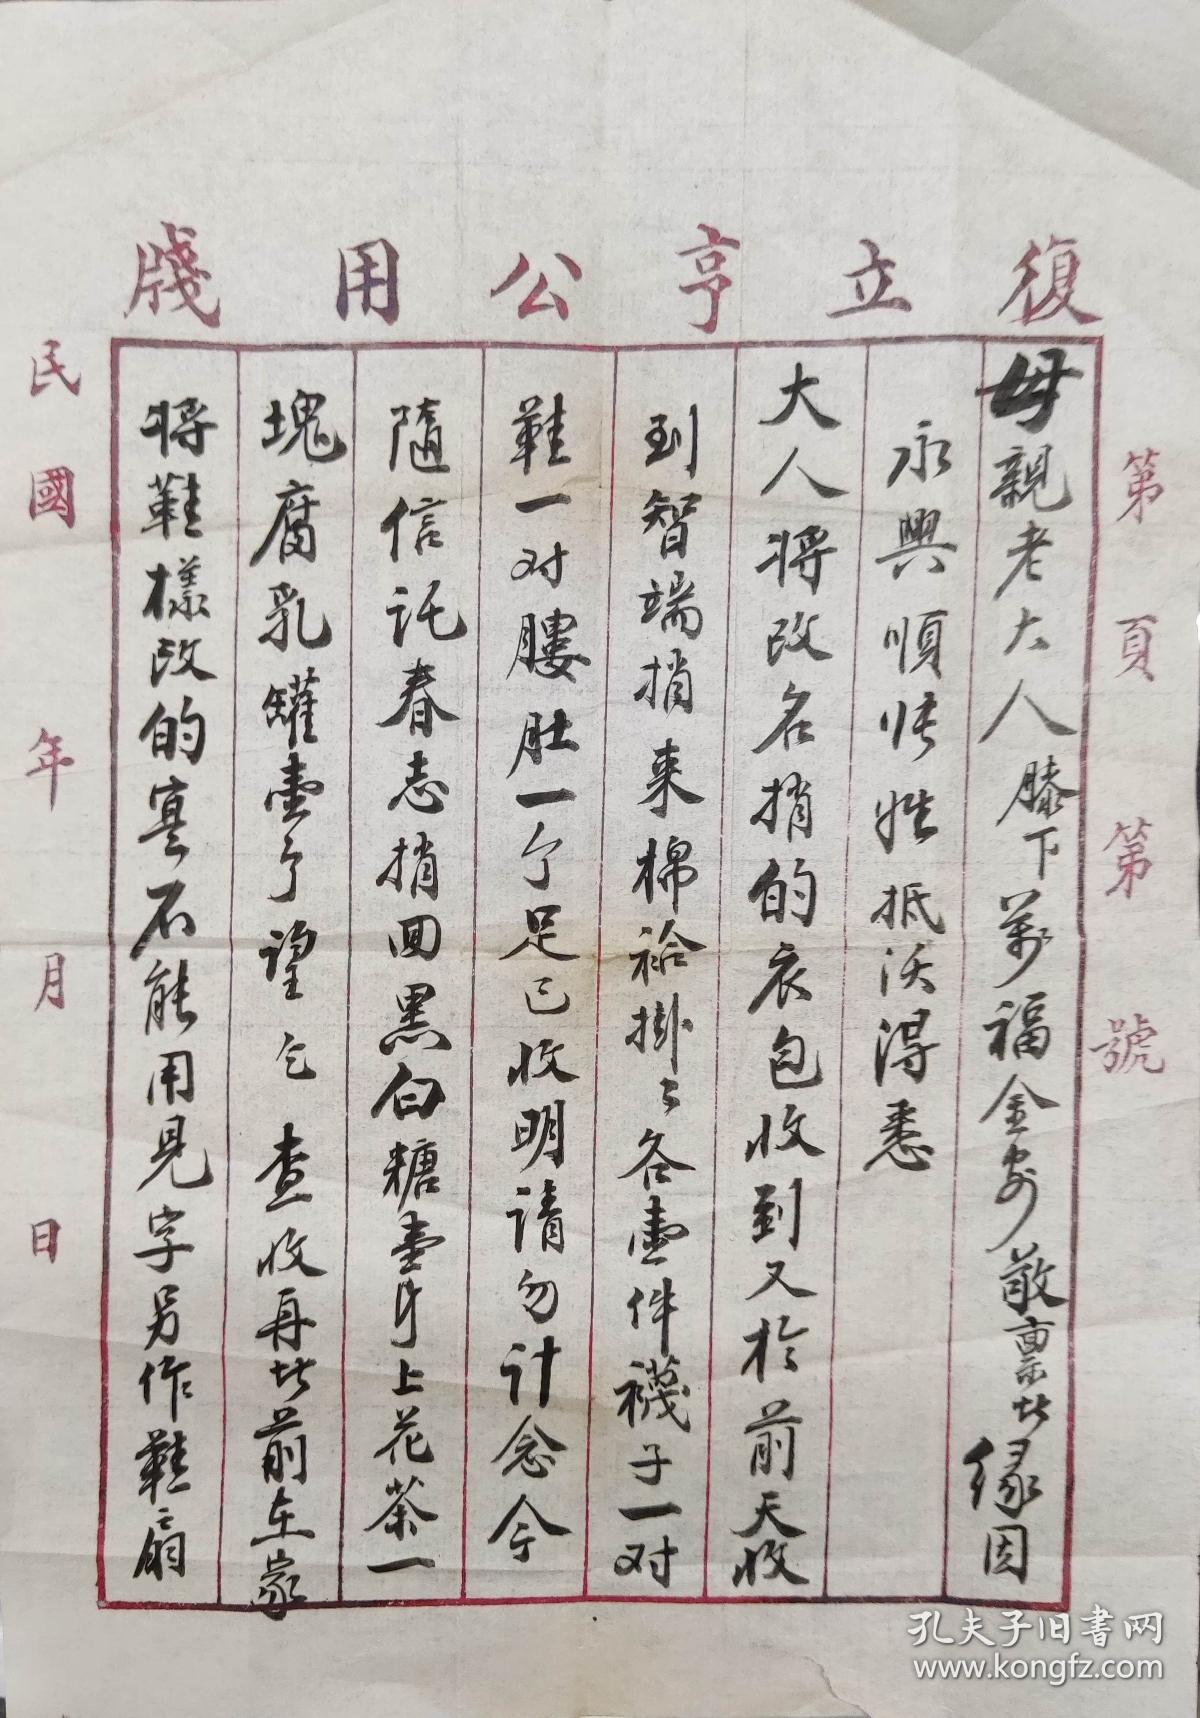 復立亨公用牋
第 頁 第 號
母親老大人膝下萬福金安敬稟者緣因
永興順悟姓抵沃得悉
大人將改名捎的衣包收到又於前天收
到智端捎来棉袷掛々各壹件襪子一对
鞋一对腰肚一个足已收明請勿計念今
隨信託春志捎回黑白糖壹斤上花茶一
塊腐乳罐壹个望乞查收再者前在家
將鞋樣改的寔不能用見字另作鞋扇
民國 年 月 日
孔夫子旧书网
www.kongfz.com